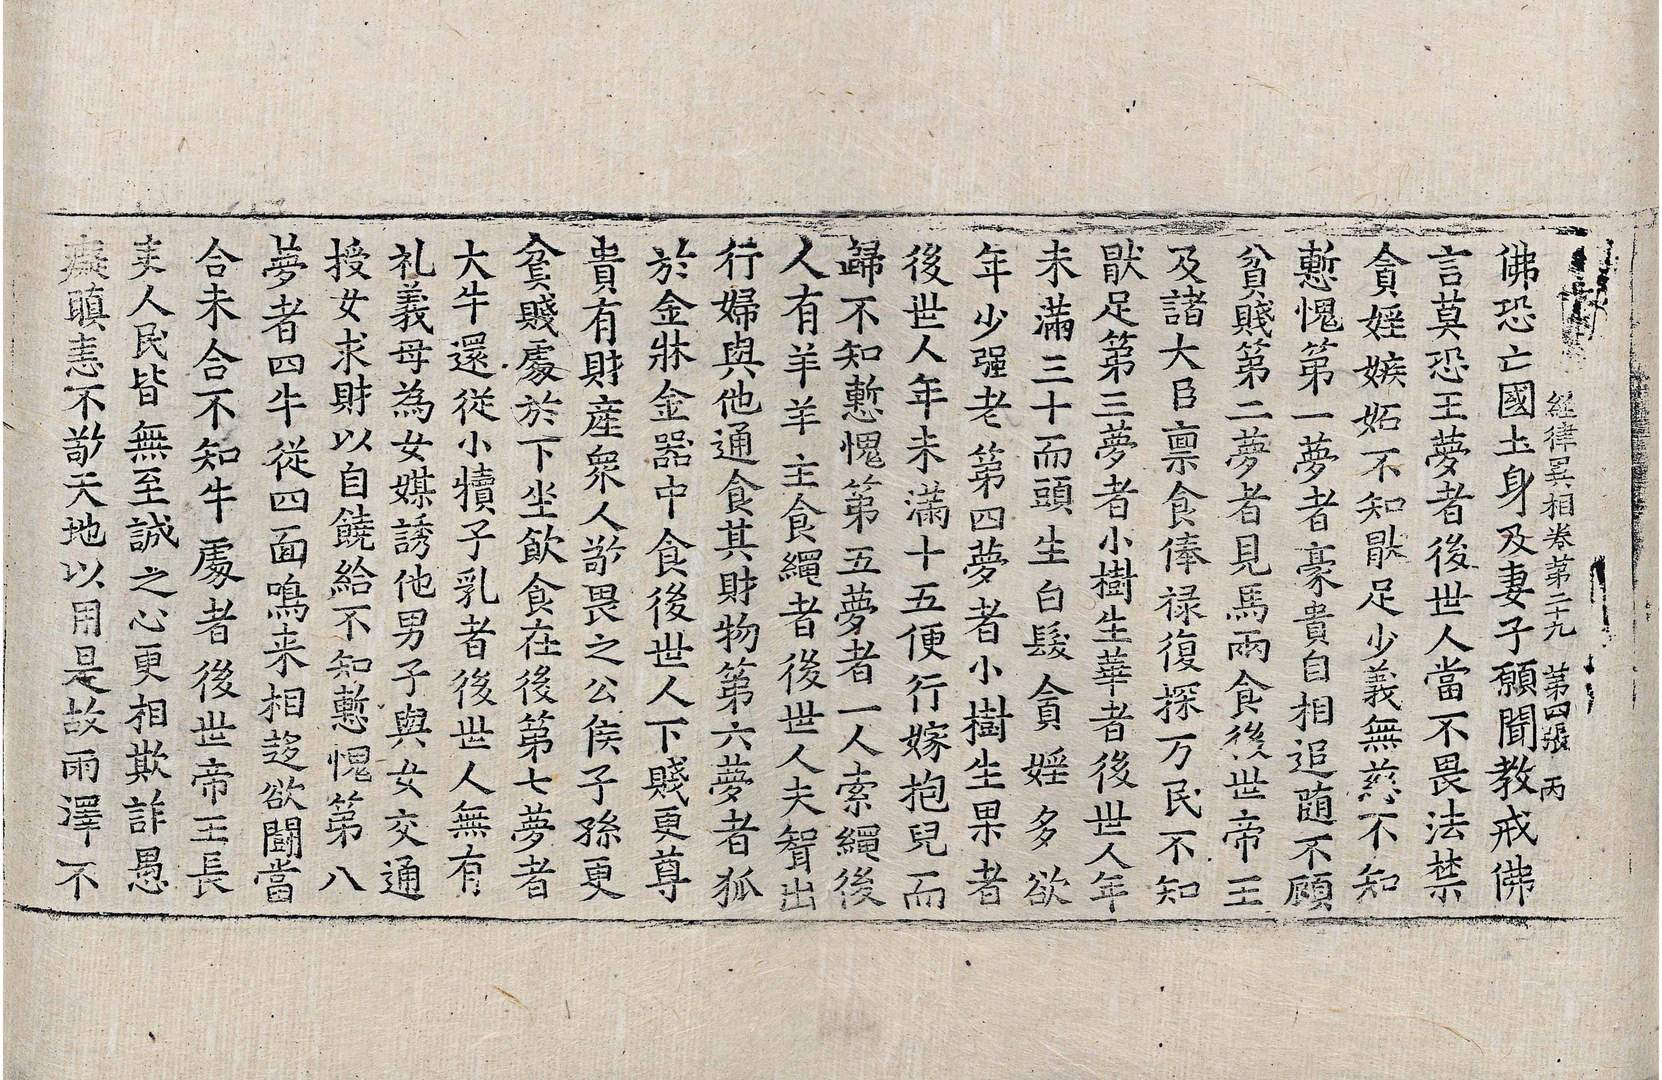 經律異相卷第二十九 第四張 丙
佛恐亡國土身及妻子願聞教戒佛
言莫恐王夢者後世人當不畏法禁
貪婬嫉妬不知猒足少義無慈不知
慙愧第一夢者豪貴自相追随不顧
貧賤第二夢者見馬兩食後世帝王
及諸大臣禀食俸禄復採万民不知
猒足第三夢者小樹生華者後世人年
未滿三十而頭生白髮貪婬多欲
年少强老第四夢者小樹生果者
後世人年未滿十五便行嫁抱兒而
歸不知慙愧第五夢者一人索繩後
人有羊羊主食繩者後世人夫智出
行婦與他通食其財物第六夢者狐
於金牀金器中食後世人下賤更尊
貴有財産衆人敬畏之公侯子孫更
貧賤處於下坐飲食在後第七夢者
大牛還従小犢子乳者後世人無有
礼義母為女媒誘他男子與女交通
授女求財以自饒給不知慙愧第八
夢者四牛従四面鳴来相趍欲鬪當
合未合不知牛處者後世帝王長
吏人民皆無至誠之心更相欺詐愚
癡瞋恚不敬天地以用是故雨澤不